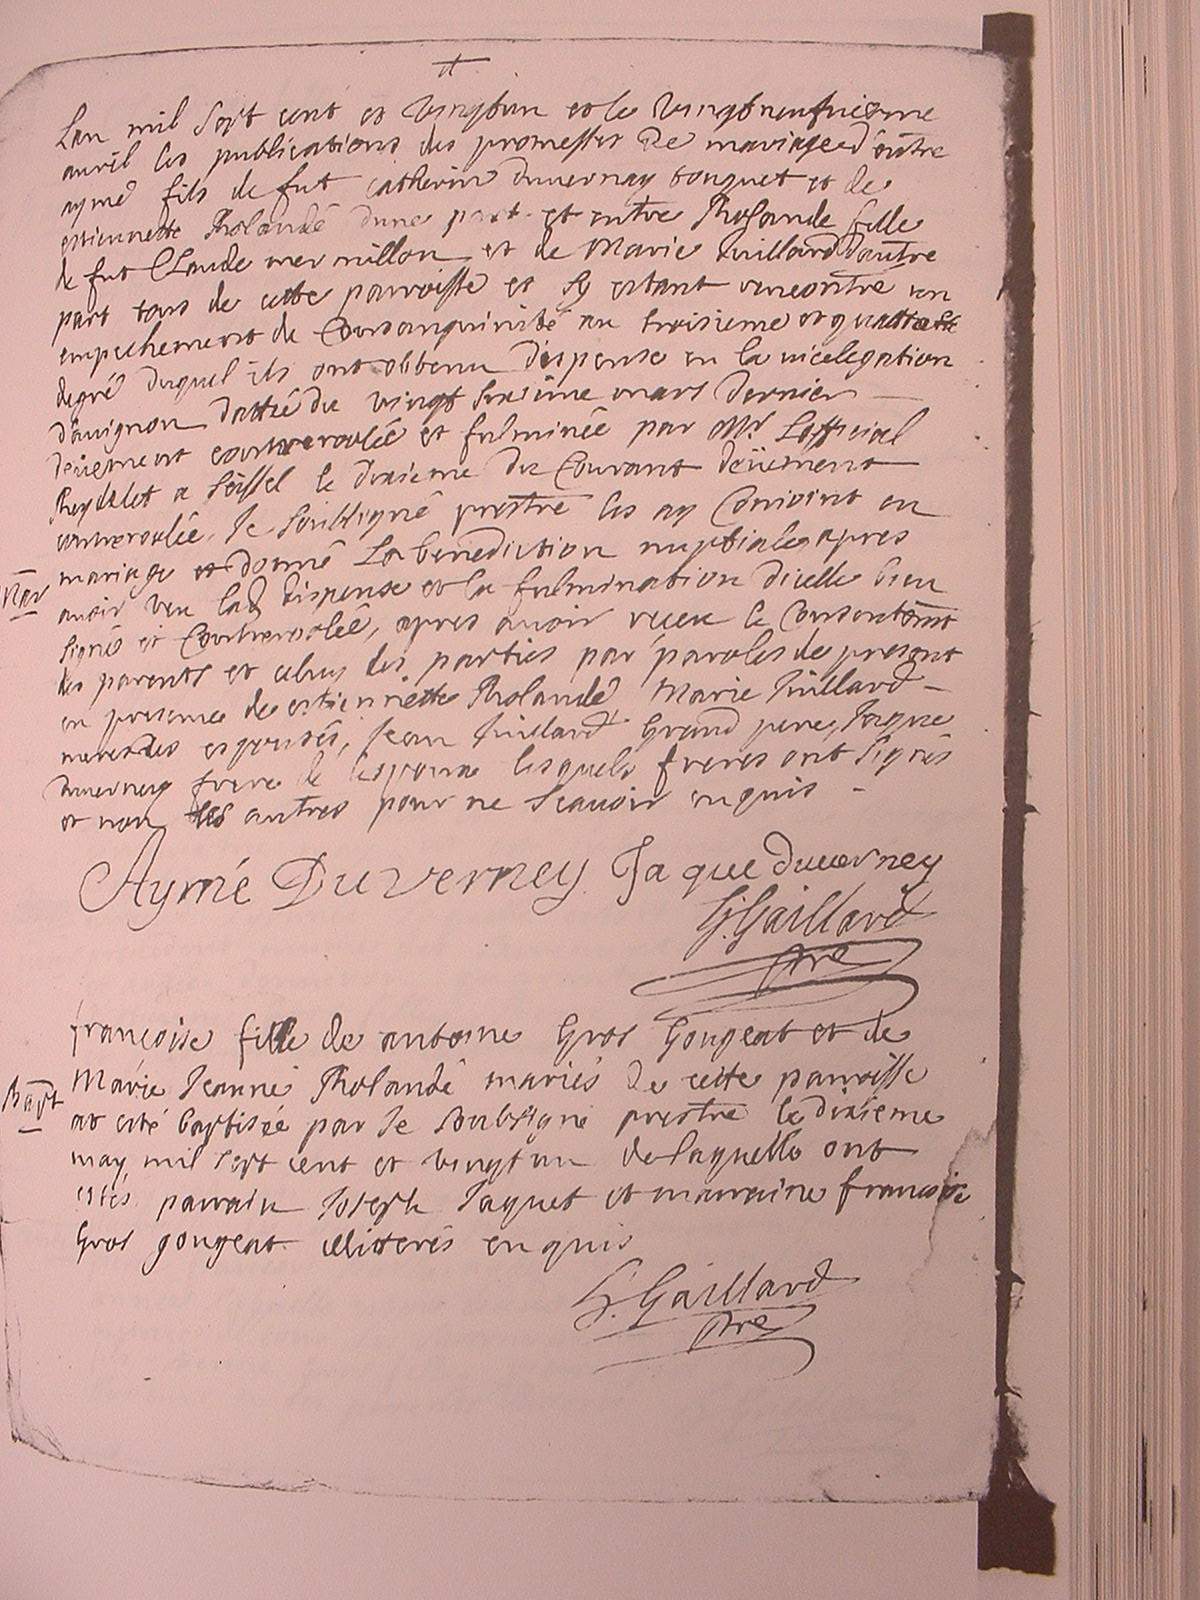 Lan mil sept cent et vingt un et le vingt neufvieme
avril les publications des promesses de mariage d'entre
aymé fils de fut catherin duvernay touquet et de
estiennette Rholande d'une part et entre Rholande fille
de fut Claude mermillon et de Marie Juillard d'autre
part tous de cette parroisse et sy estant rencontré un
empechement de Consanguinité au troisieme et quatre
degré duquel ils ont obtenu dispense en la vicelegation
d'avignon dattée du vingt sixieme mars dernier
deüement controrolée et fulminée par Mr Lofficial
Reydelet a Seissel le dixieme du Courant deüement
controrolée. Je soubsigné prestre les ay Conjoint en
mariage et donné La benediction nuptiale apres
Mar
avoir veu lad dispense et la fulmination d'icelle bien
signée et Controrolée, apres avoir receu le Consentemt
des parents et celuy des parties par paroles de present
en presence de estiennette Rholande Marie Juillard
meres des espousés, Jean Juillard Grand pere, Jaque
duverney frere de lespoux lesquels freres ont signés
et non les autres pour ne scavoir enquis
Aymé Duverney Jaque duverney
G. Gaillard
ptre
francoise fille de antoine Gros Gongeat et de
Marie Jeanne Rholande mariés de cette parroisse
Bapt
at esté baptisée par je soubsigné prestre le dixieme
may mil sept cent et vingt un de laquelle ont
estés parrain Joseph Jaquet et marraine francoise
Gros gongeat illiterés enquis
G. Gaillard
ptre